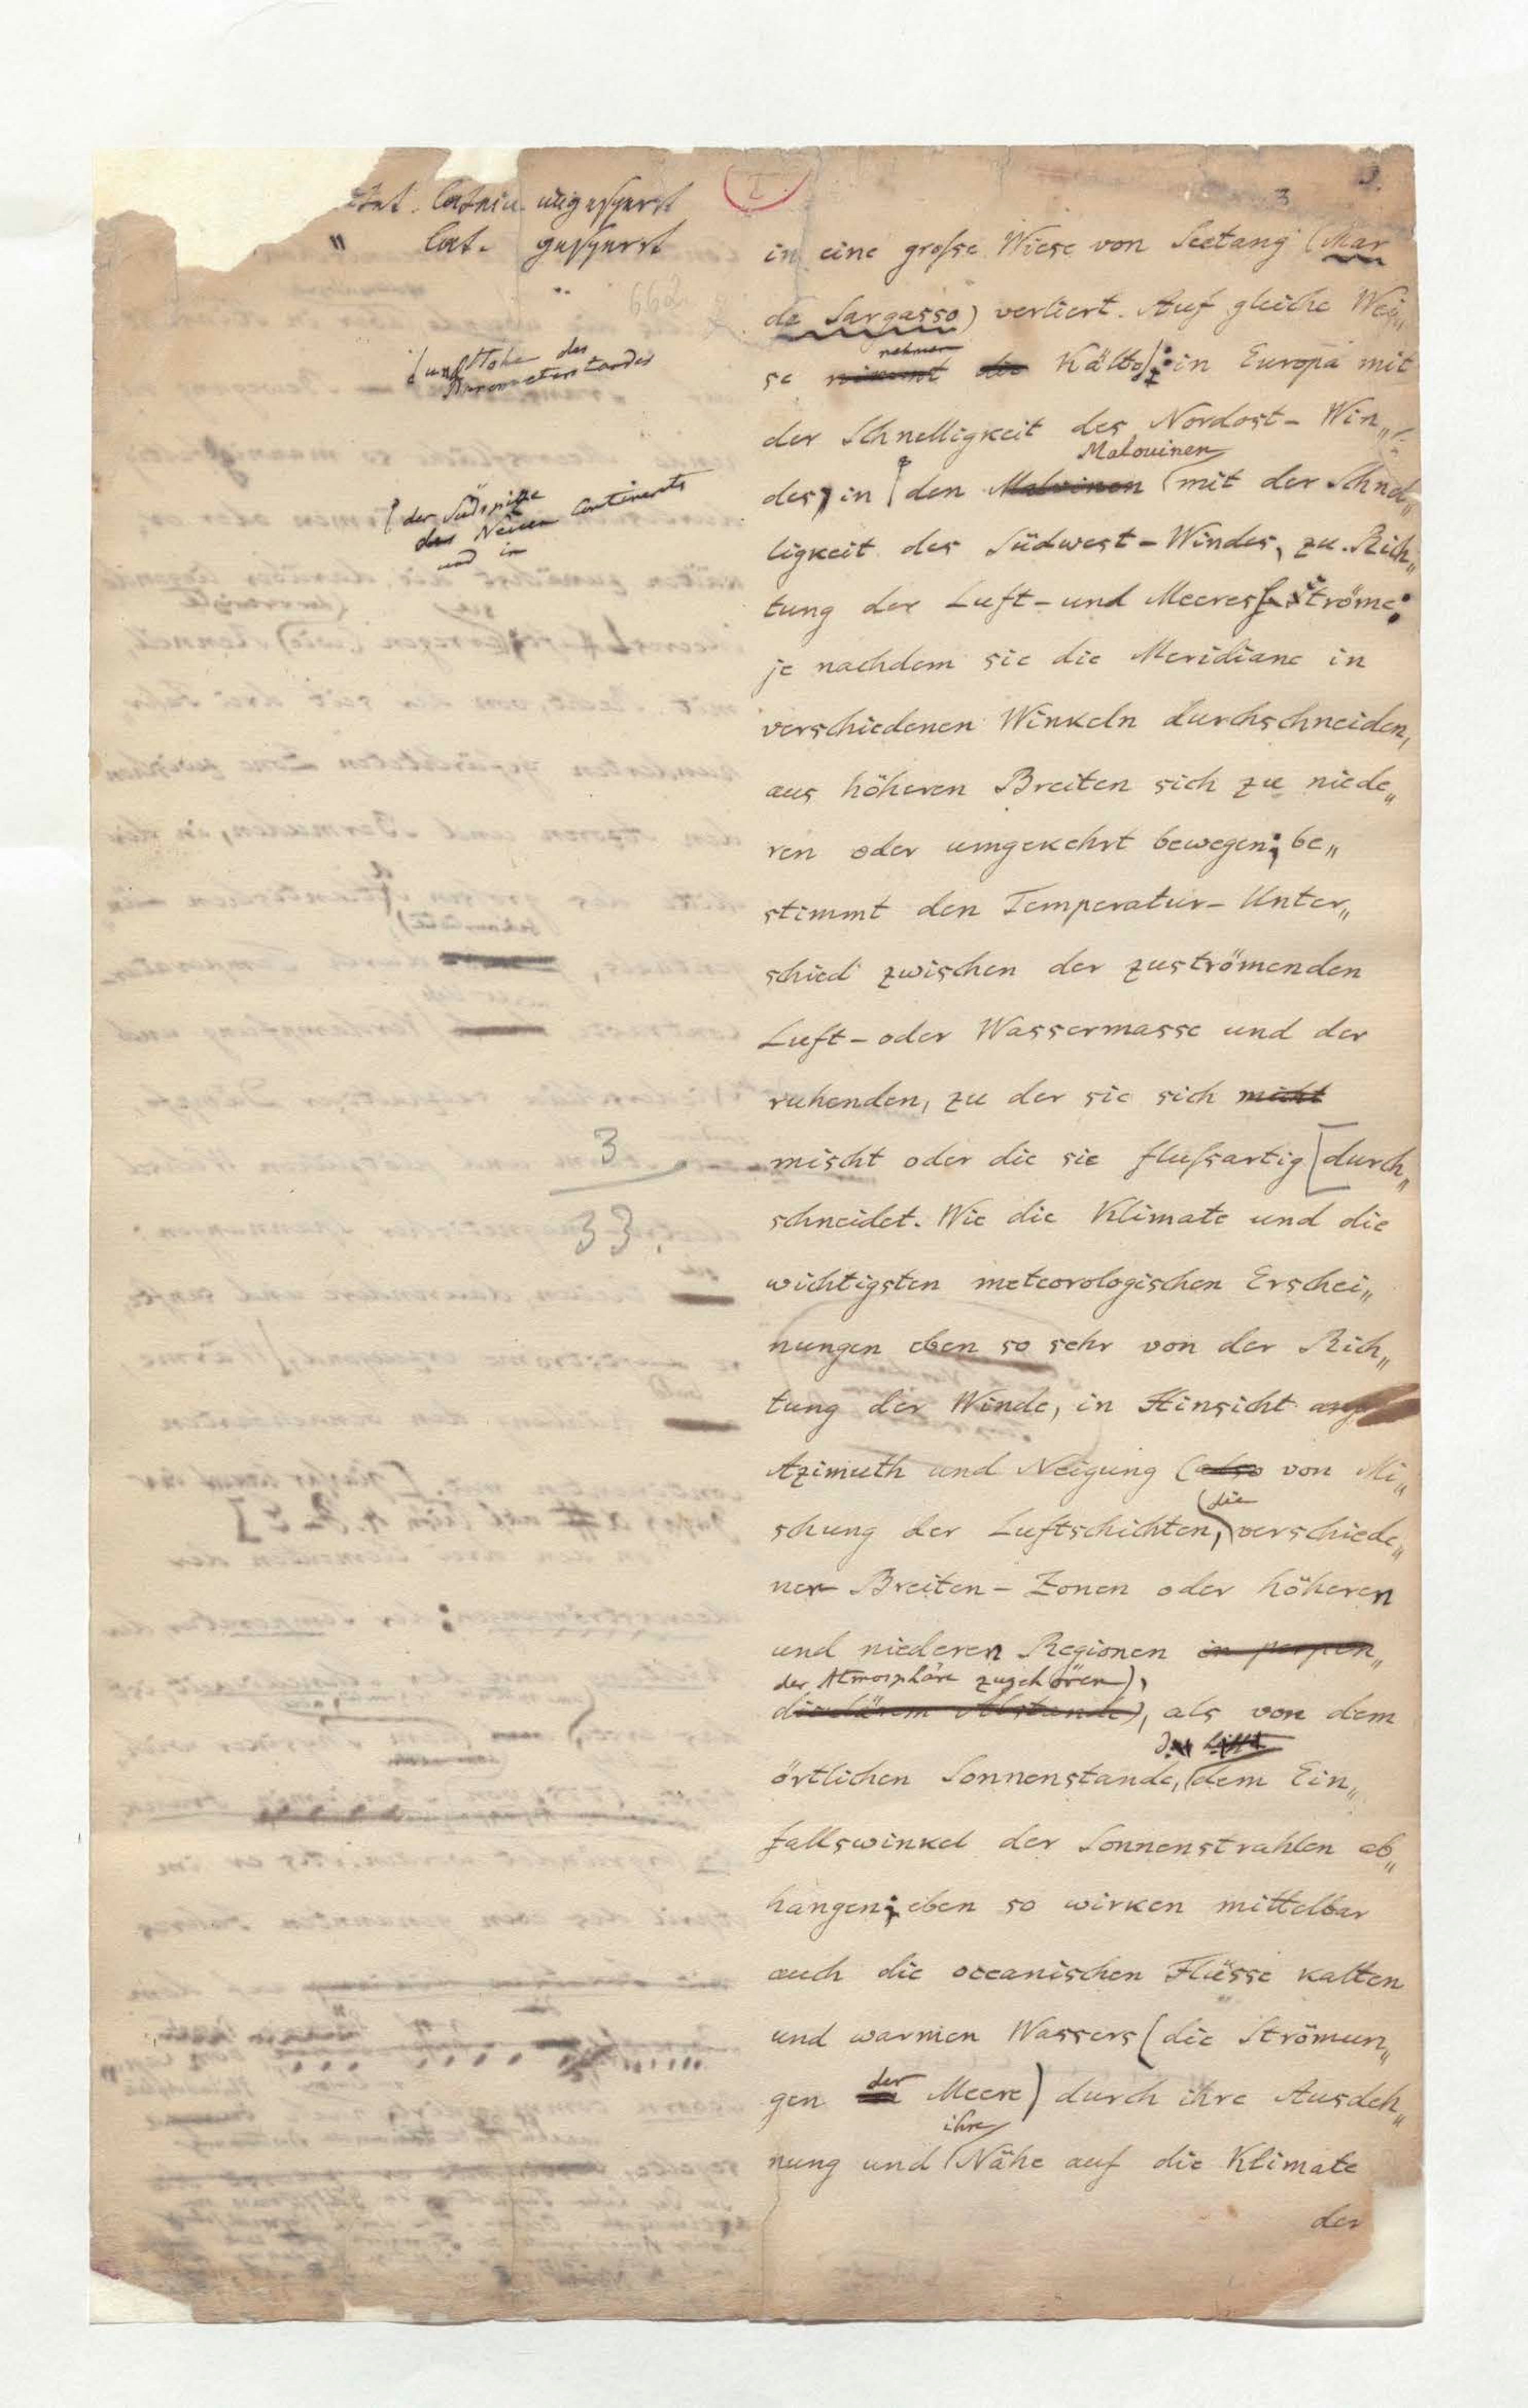 latein. ungesperrt
" lat. gesperrt
3
in eine große Wiese von Seetang (Mar
de Sargasso) verliert. Auf gleiche Wei„
nehmen
se nimmt die Kälte in Europa mit
und Höhe des
Barometerstandes
der Schnelligkeit des Nordost-Win„
Malouinen
des, in den Malvinen mit der Schnel„
der Südspitze
des Neuen Continents
und in
ligkeit des Südwest-Windes, zu. Rich„
tung der Luft- und Meeres Ströme;
je nachdem sie die Meridiane in
verschiedenen Winkeln durchschneiden,
aus höheren Breiten sich zu niede„
ren oder umgekehrt bewegen; be„
stimmt den Temperatur-Unter„
schied zwischen der zuströmenden
Luft- oder Wassermasse und der
ruhenden, zu der sie sich nicht
3
mischt oder die sie flußartig [durch„
33.
schneidet. Wie die Klimate und die
wichtigsten meteorologischen Erschei„
nungen eben so sehr von der Rich„
tung der Winde, in Hinsicht auf
Azimuth und Neigung (also von Mi„
die
schung der Luftschichten, verschiede„
ner Breiten-Zonen oder höheren
und niederen Regionen in perpen„
der Atmosphäre zugehören),
diculärem Abstande), als von dem
örtlichen Sonnenstande, dem Ein„
fallswinkel der Sonnenstrahlen ab„
hangen; eben so wirken mittelbar
auch die oceanischen Flüsse kalten
und warmen Wassers (die Strömun„
der
gen Meere) durch ihre Ausdeh„
ihre
nung und Nähe auf die Klimate
der